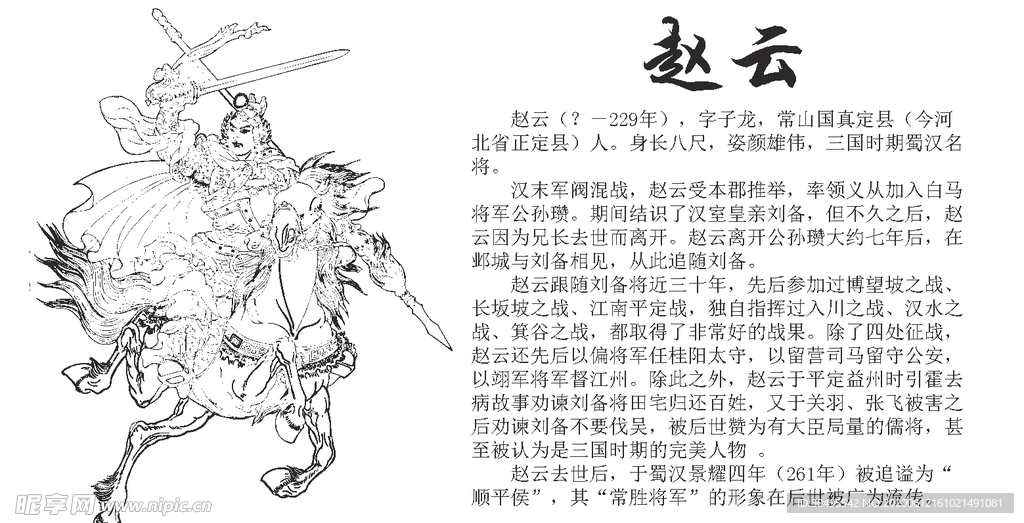 赵云
赵云（？－229年），字子龙，常山国真定县（今河
北省正定县）人。身长八尺，姿颜雄伟，三国时期蜀汉名
将。
汉末军阀混战，赵云受本郡推举，率领义从加入白马
将军公孙瓒。期间结识了汉室皇亲刘备，但不久之后，赵
云因为兄长去世而离开。赵云离开公孙瓒大约七年后，在
邺城与刘备相见，从此追随刘备。
赵云跟随刘备将近三十年，先后参加过博望坡之战、
长坂坡之战、江南平定战，独自指挥过入川之战、汉水之
战、箕谷之战，都取得了非常好的战果。除了四处征战，
赵云还先后以偏将军任桂阳太守，以留营司马留守公安，
以翊军将军督江州。除此之外，赵云于平定益州时引霍去
病故事劝谏刘备将田宅归还百姓，又于关羽、张飞被害之
后劝谏刘备不要伐吴，被后世赞为有大臣局量的儒将，甚
至被认为是三国时期的完美人物 。
赵云去世后，于蜀汉景耀四年（261年）被追谥为“
顺平侯”，其“常胜将军”的形象在后世被广为流传。
昵享网 www.nipic.cn